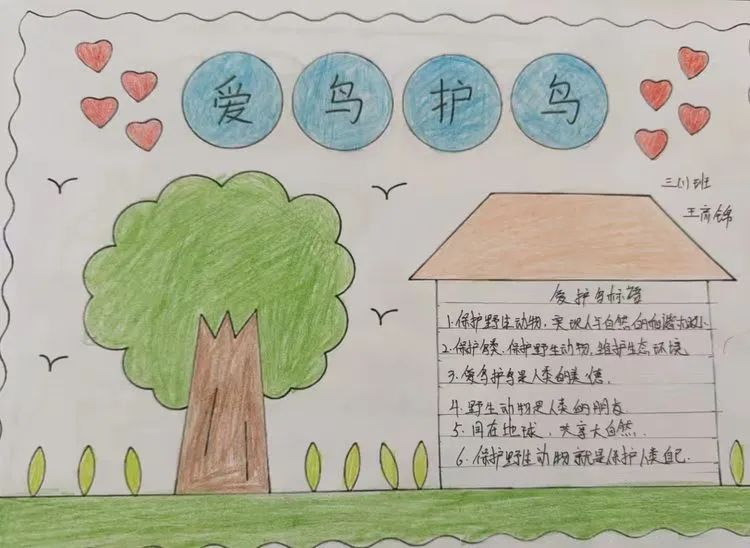 爱鸟护鸟
三(1)班
爱护鸟标语
1.保护野生动物,实现人与自然的和谐
2.保护鸟类、保护野生动物,维护生态环境
3.爱鸟护鸟是人类的美德.
4.野生动物是人类的朋友
5.同在地球,共享大自然.
6.保护野生动物就是保护人类自己.